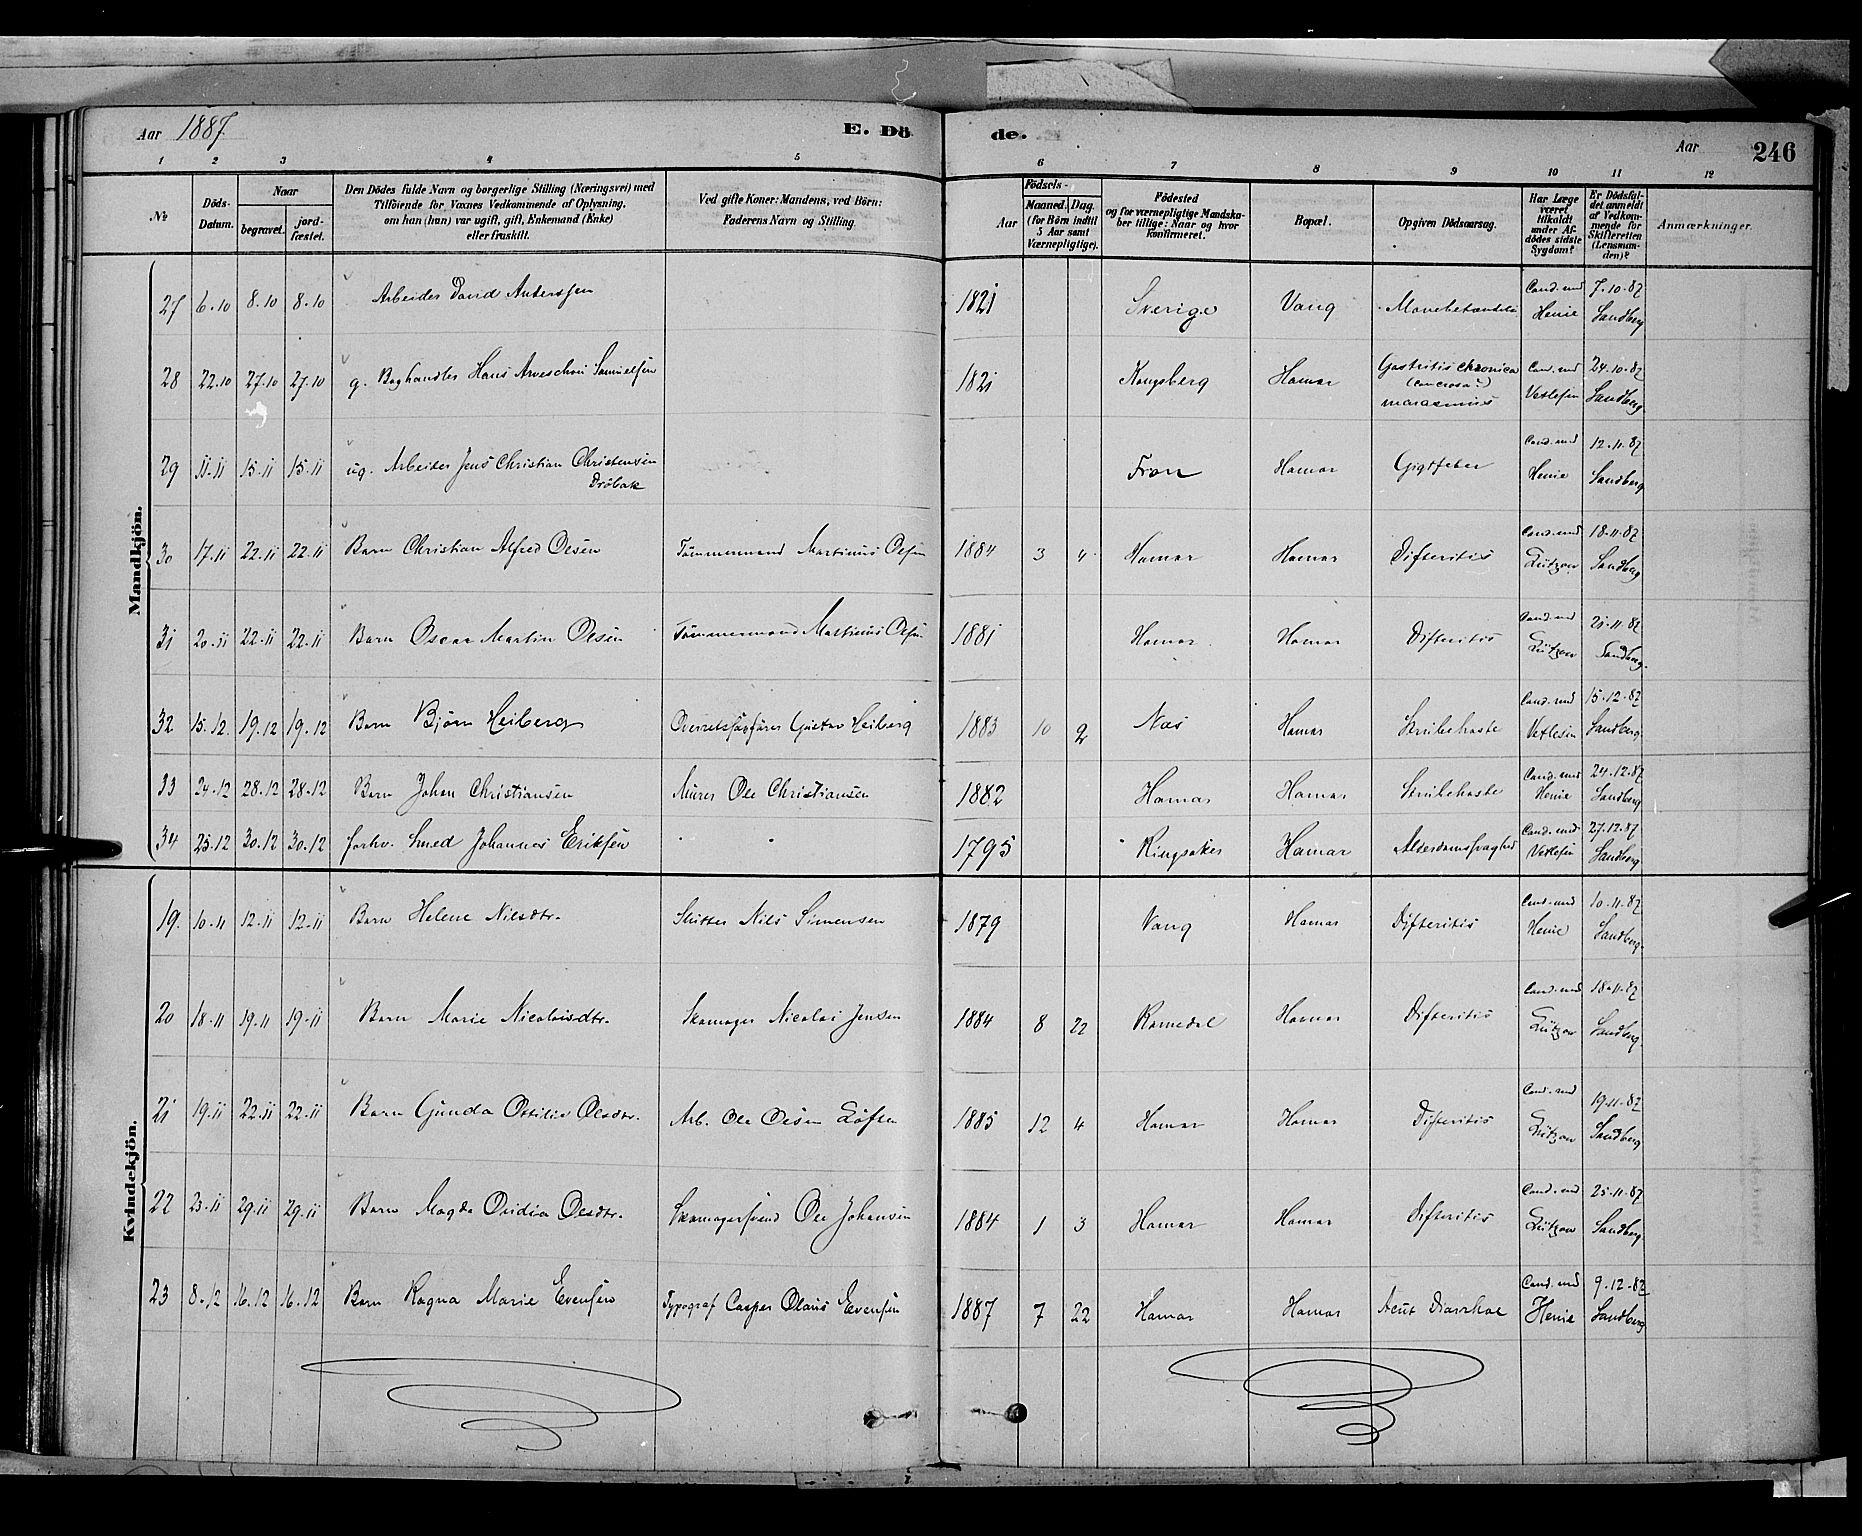 Aar 1887. E. Dö de. Aar 246
1 2 3 4 5 6 7 8 9 10 11 12
№ Döds-Datum. Naar begravet. jordfæstet. Den Dödes fulde Navn og borgerlige Stilling (Næringsvei) med Tilföiende for Voxnes Vedkommende af Oplysning, om han (hun) var ugift, gift, Enkemand (Enke) eller fraskilt. Ved gifte Koner: Mandens, ved Börn: Faderens Navn og Stilling. Aar Födsels- Maaned. Dag. (for Börn indtil 5 Aar samt Værnepligtige). Födested og for værnepligtige Mandskaber tillige: Naar og hvor konfirmeret. Bopæl. Opgiven Dödsaarsag. Har Læge været tilkaldt under Afdödes sidste Sygdom? Er Dödsfaldet anmeldt af Vedkommende for Skifteretten (Lensmanden)? Anmærkninger.
Mandkjön.
27 6.10 8.10 8.10 Arbeider David Anderssen 1821 Sverige Vang Cand. med Henie 7.10.87 Sandberg
28 22.10 27.10 27.10 g. Boghandler Hans Samuelsen 1821 Kongsberg Hamar Gastritis chronica (cancrosa?) marasmus Cand. med Vetlesen 24.10.87 Sandberg
29 11.11 15.11 15.11 ug. Arbeider Jens Christian Christensen Dröbak Fron Hamar Gigtfeber Cand. med Henie 12.11.87 Sandberg
30 17.11 22.11 22.11 Barn Christian Alfred Olsen Tömmermand Martinus Olsen 1884 3 4 Hamar Hamar Difteritis Cand. med Lützow 18.11.87 Sandberg
31 20.11 22.11 22.11 Barn Oscar Martin Olsen Tömmermand Martinus Olsen 1881 Hamar Hamar Difteritis Cand. med Lützow 21.11.87 Sandberg
32 15.12. 19.12 19.12 Barn Bjørn Heiberg Overretssagfører Gustav Heiberg 1883 10 2 Næs Hamar Strubehoste Cand. med Vetlesen 15.12.87 Sandberg
33 24.12 28.12 28.12 Barn Johan Christiansen Murer Ole Christiansen 1882 Hamar Hamar Strubehoste Cand. med Henie 24.12.87 Sandberg
34 25.12 30.12 30.12 forhv. Smed Johannes Eriksen 1795 Ringsaker Hamar Alderdomssvaghed Cand. med Vetlesen 27.12.87 Sandberg
Kvindekjön.
19. 10.11 12.11 12.11 Barn Helene Nilsdtr. Nils Simensen 1879 Vang Hamar Difteritis Cand. med Henie 10.11.87 Sandberg
20 18.11 19.11 19.11 Barn Marie Nicolaisdtr. Skomager Nicolai Jensen 1884 8 22 Romedal Hamar Difteritis Cand. med Lützow 18.11.87 Sandberg
21 19.11 22.11 22.11 Barn Gunda Ottilie Olsdtr. Arb. Ole Olsen Løften 1885 12 4 Hamar Hamar Difteritis Cand. med Lützow 19.11.87 Sandberg
22 23.11 29.11 29.11 Barn Magda Ovidia Olsdtr. Skomagersvend Ole Johansen 1884 1 3 Hamar Hamar Difteritis Cand. med Lützow 25.11.87 Sandberg
23 8.12 16.12 16.12 Barn Ragna Marie Evensen Typograf Casper Olaus Evensen 1887 7 22 Hamar Hamar Acut Diarrhoe Cand. med Henie 9.12.87 Sandberg